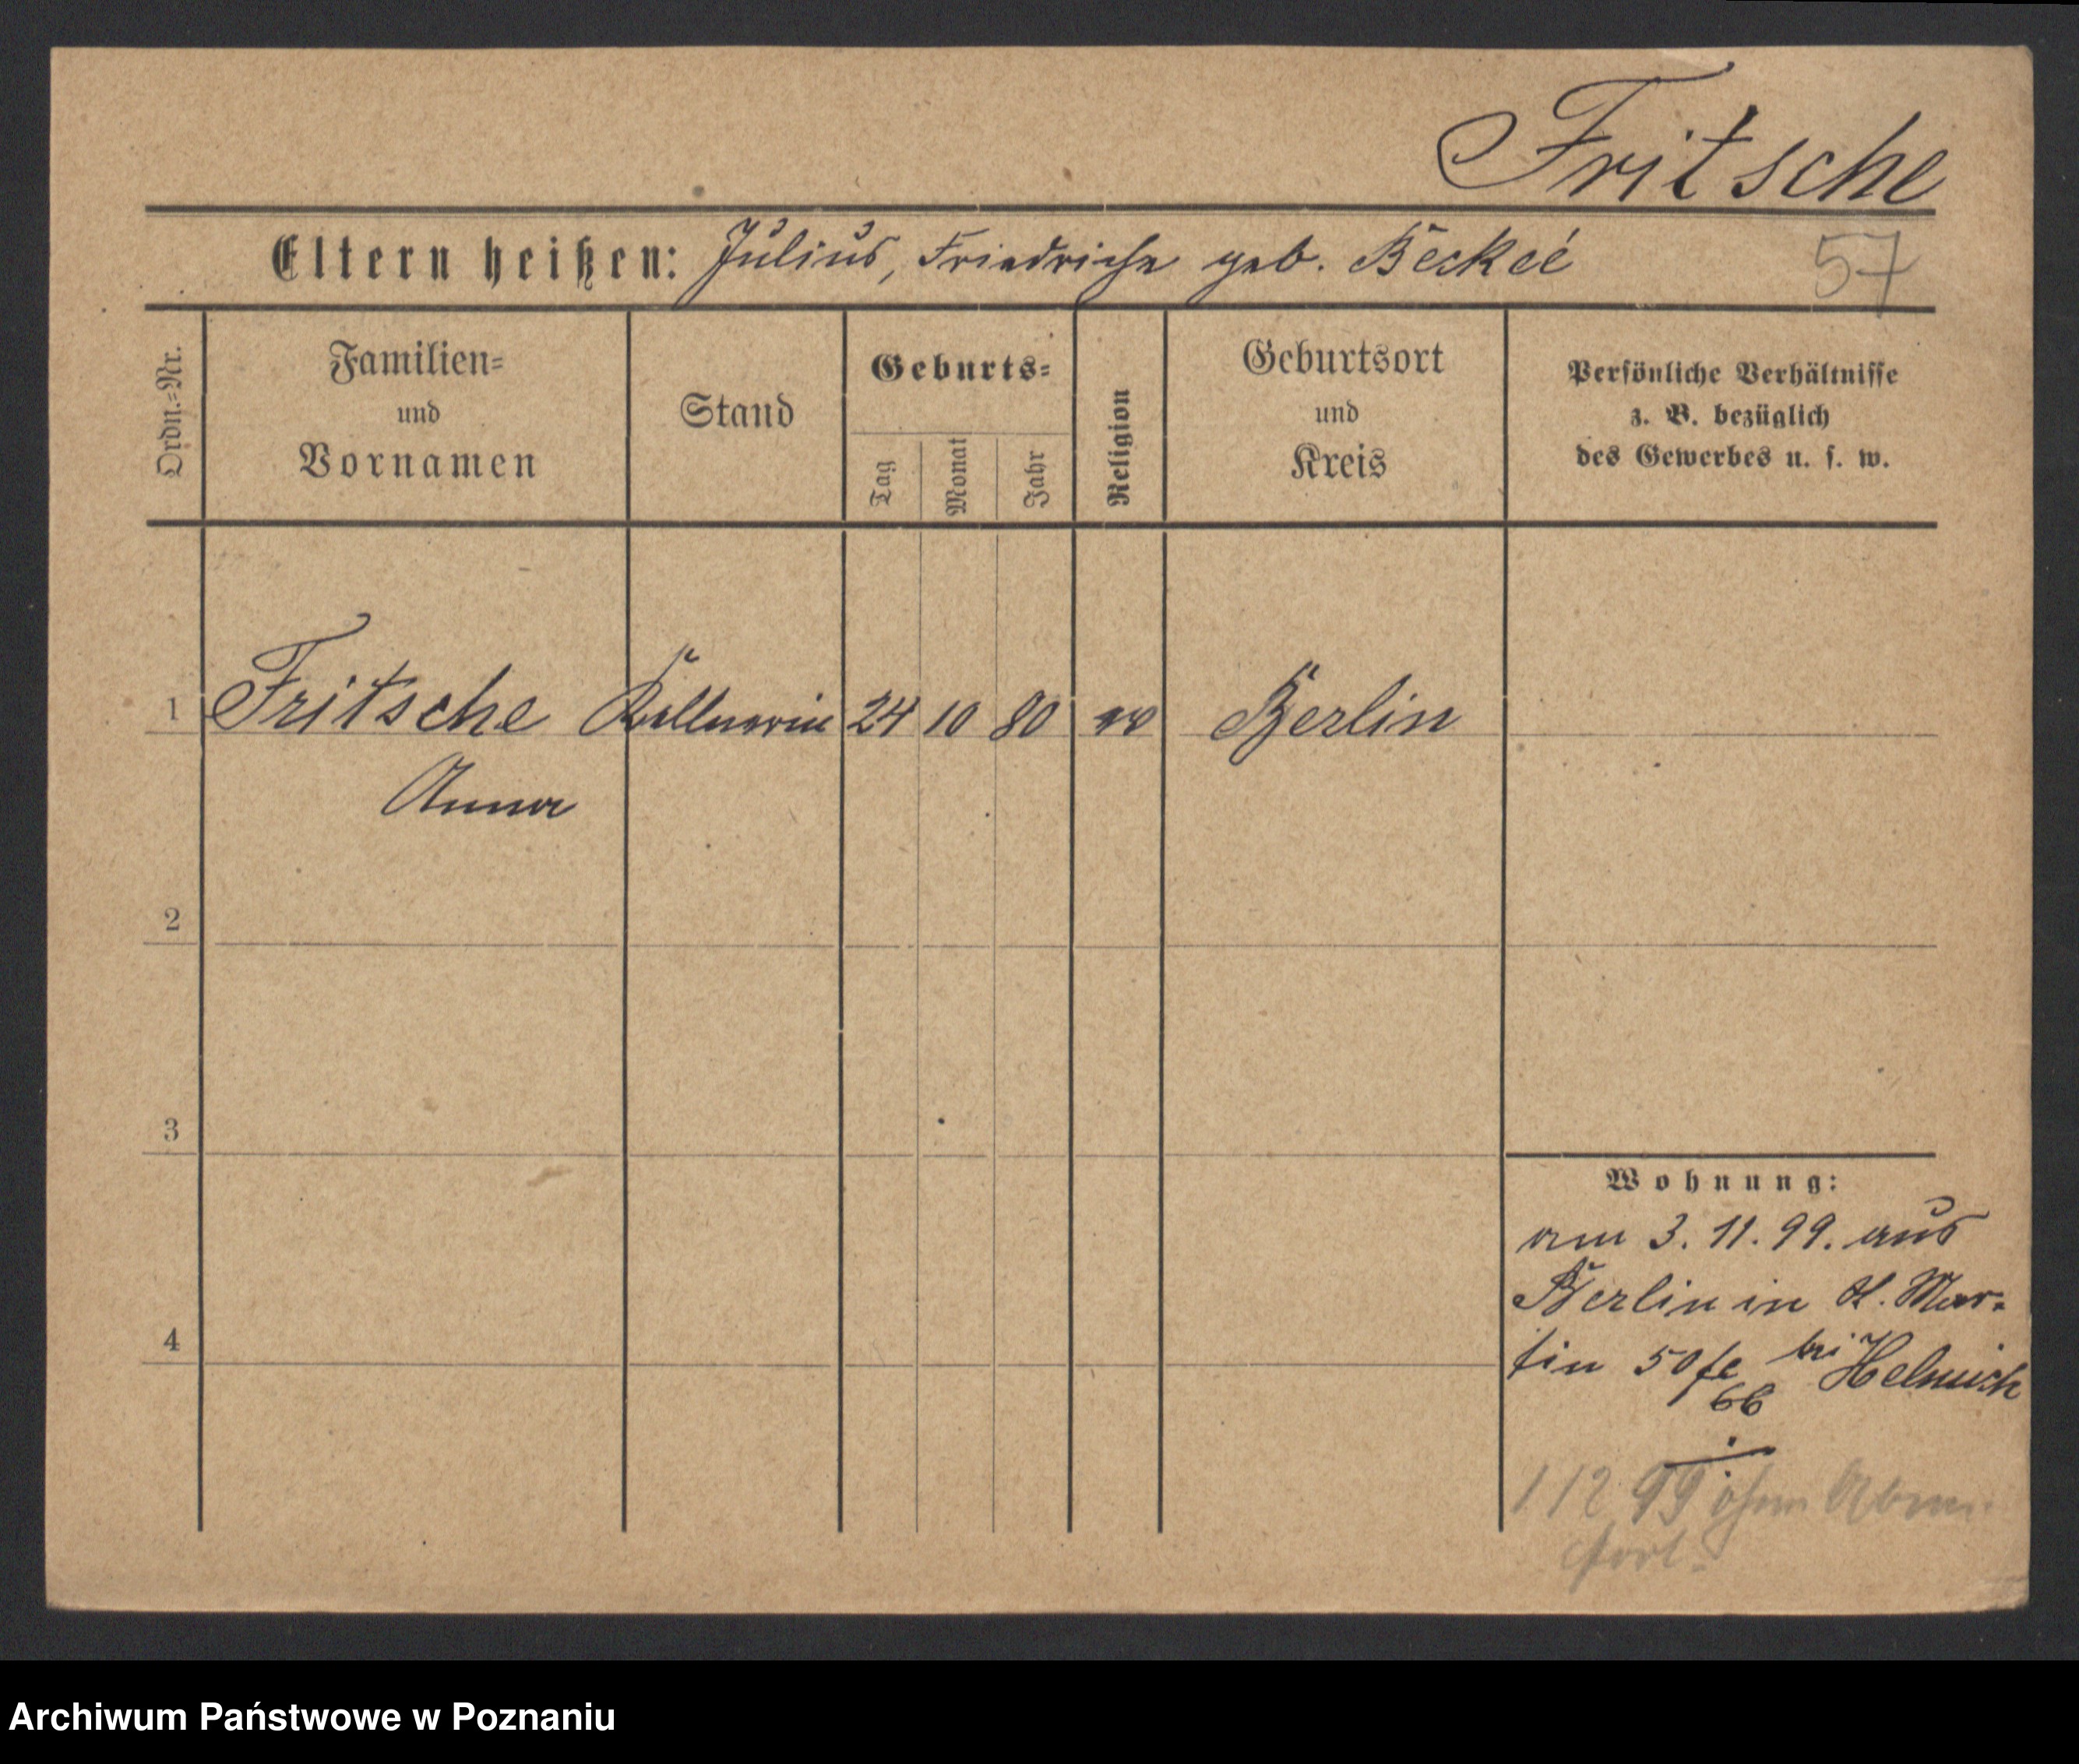 Fritsche
Eltern heißen: Julius, Friedricke geb. Beckeé
57
Ordn.-Nr.
Familien-
und
Vornamen
Stand
Geburts-
Tag
Monat
Jahr
Religion
Geburtsort
und
Kreis
Persönliche Verhältnisse
z. B. bezüglich
des Gewerbes u. s. w.
1 Fritsche Kellnerin 24 10 80 ev Berlin
Anna
2
3
4
Wohnung:
am 3. 11. 99. aus
Berlin in St. Mar-
tin 50 bei Helmich
66
1 12 99 ohne
fort.
Archiwum Państwowe w Poznaniu